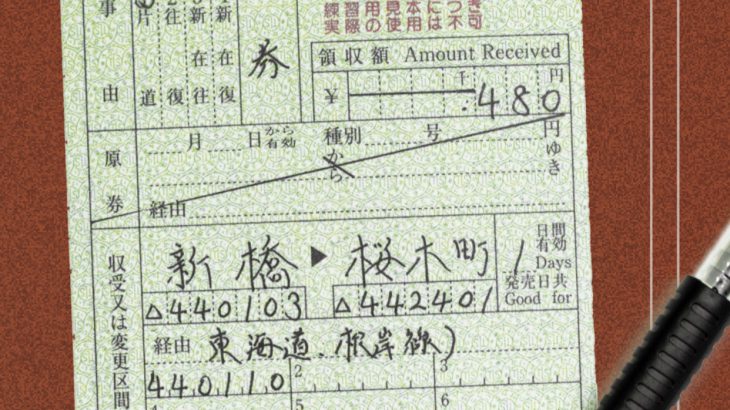 事由
①片道
2往復
3新在往
新在復
券
練習用見本につき
実際の使用には不可
領収額 Amount Received
千 円
¥ 480
原券
月 日から有効 種別 号
円
から
ゆき
経由
収受又は変更区間
新橋 ▶ 桜木町
1
日間有効
Days
発売日共
Good for
△440103
△442401
経由 東海道.根岸線)
440110
2
3
4
5
6